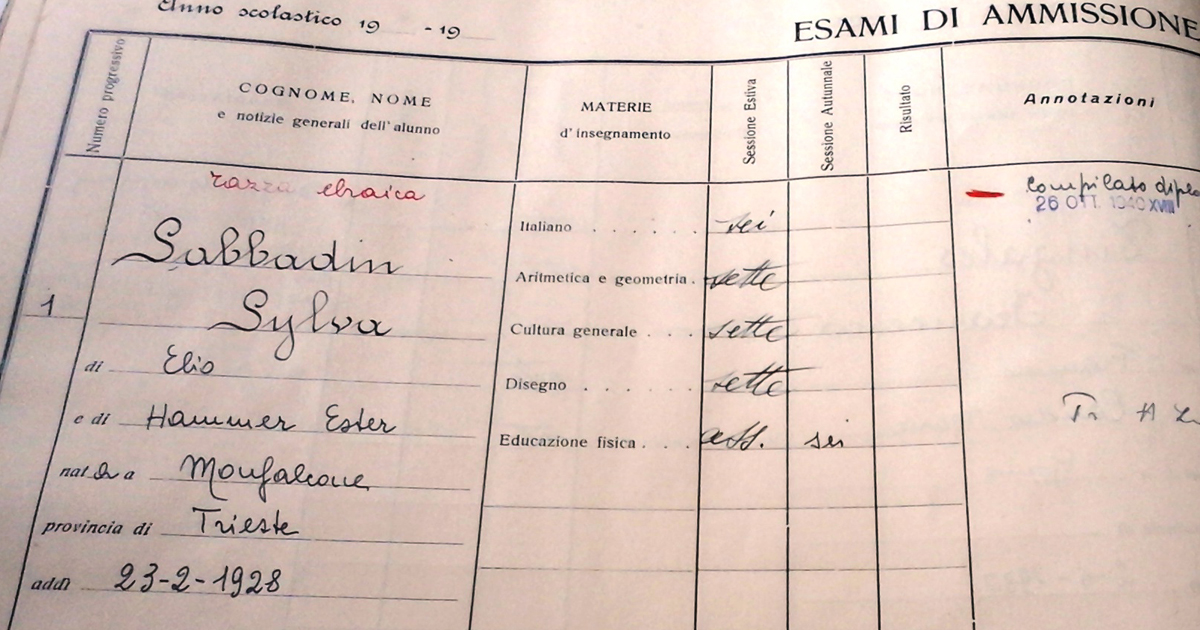 Anno scolastico 19 -19
ESAMI DI AMMISSIONE
Numero progressivo
COGNOME, NOME
e notizie generali dell'alunno
MATERIE
d'insegnamento
Sessione Estiva
Sessione Autunnale
Risultato
Annotazioni
razza ebraica
Compilato
26 OTT. 1940 XVIII
1
Sabbadin
Sylva
di Elio
e di Hammer Ester
nata a Monfalcone
provincia di Trieste
addì 23-2-1928
Italiano . . . . . . sei
Aritmetica e geometria . sette
Cultura generale . . . sette
Disegno . . . . . . sette
Educazione fisica . . . ass. sei